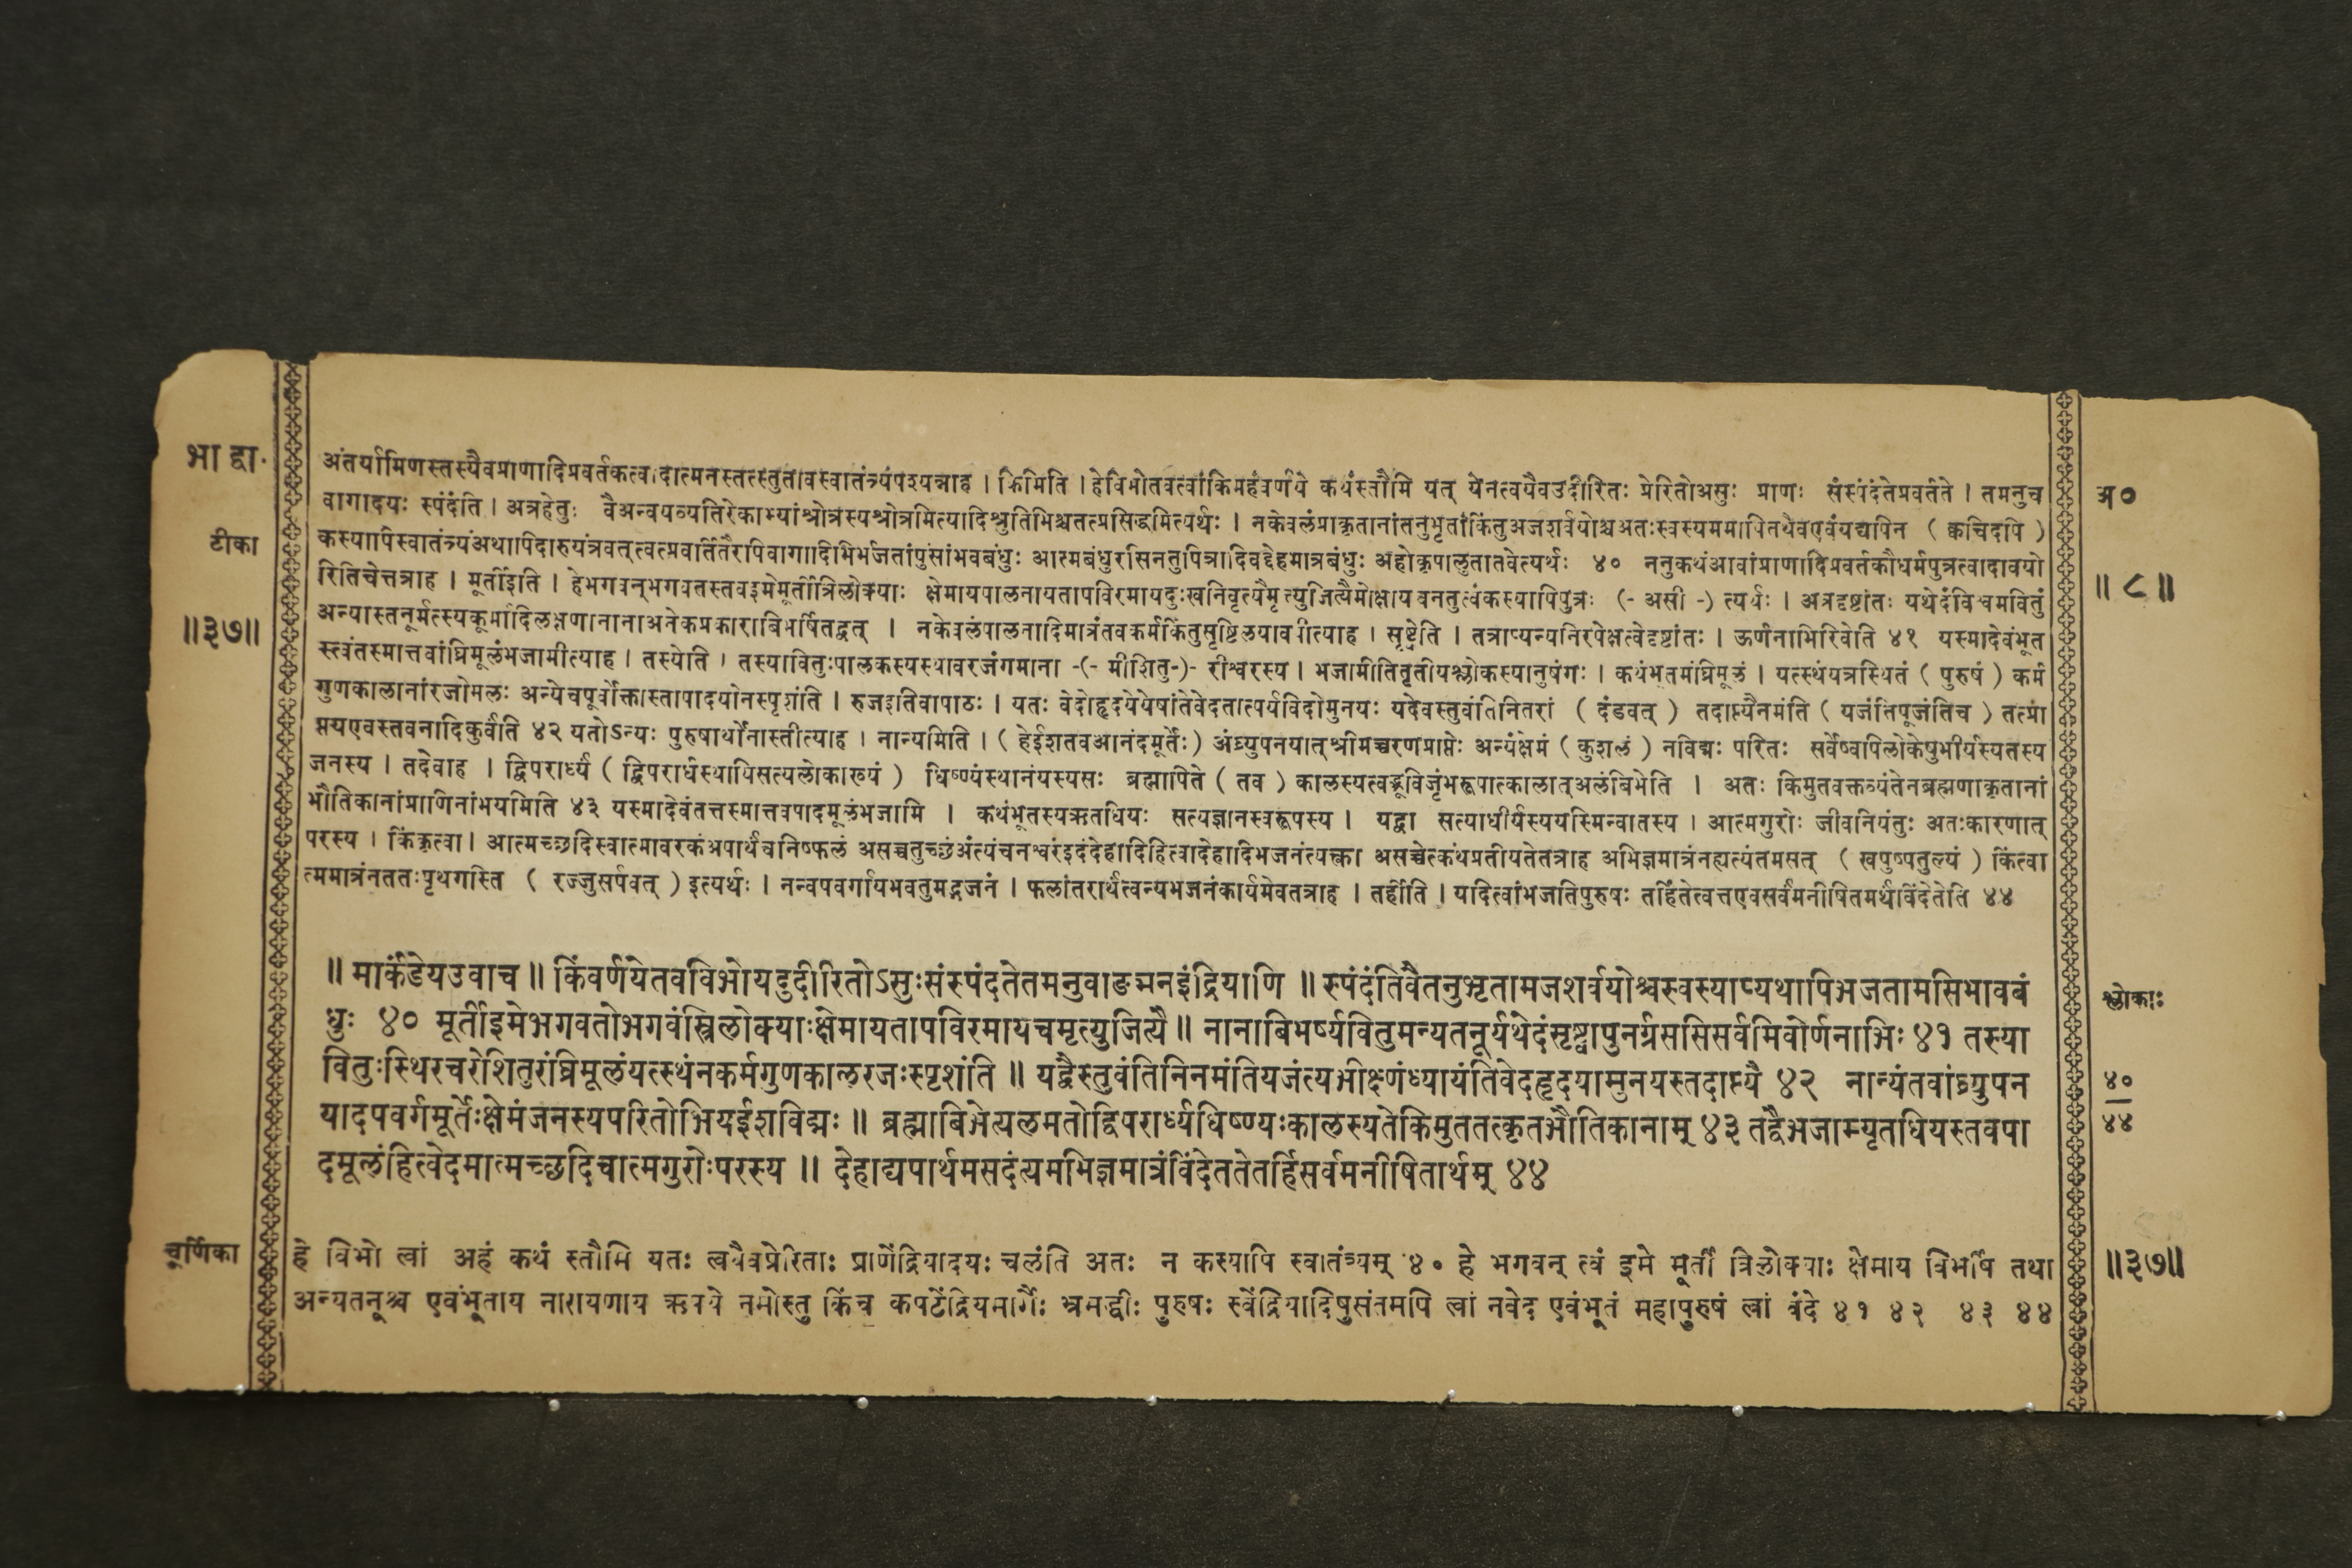 भा द्वा.
टीका
॥३७॥
अंतर्यामिणस्तस्यैवप्राणादिप्रवर्तकत्वादात्मनस्तत्स्तुतावस्वातंत्र्यंपश्यन्नाह । किमिति । हेविभोतवत्वांकिमहंवर्णये कथंस्तौमि यत् येनत्वयैवउदीरितः प्रेरितोअसुः प्राणः संस्पंदतेप्रवर्तते । तमनुच
वागादयः स्पंदंति । अत्रहेतुः वैअन्वयव्यतिरेकाभ्यांश्रोत्रस्यश्रोत्रमित्यादिश्रुतिभिश्चतत्प्रसिद्धमित्यर्थः । नकेवलंप्राकृतानांतनुभृतांकिंतुअजशर्वयोश्चअतःस्वस्यममापितथैवएवंयद्यपिन ( क्वचिदपि )
कस्यापिस्वातंत्र्यंअथापिदारुयंत्रवत्त्वत्प्रवर्तितैरापिवागादिभिर्भजतांपुंसांभवबंधुः आत्मबंधुरसिनतुपित्रादिवद्देहमात्रबंधुः अहोकृपालुतातवेत्यर्थः ४० ननुकथंआवांप्राणादिप्रवर्तकौधर्मपुत्रत्वादावयो
रितिचेत्तत्राह । मूर्तीइति । हेभगवन्भगवतस्तवइमेमूर्तीत्रिलोक्याः क्षेमायपालनायतापविरमायदुःखनिवृत्यैमृत्युजित्यैमोक्षायवनतुत्वंकस्यापिपुत्रः (- असी -) त्यर्थः । अत्रदृष्टांतः यथेदंविश्वमवितुं
अन्यास्तनूर्मत्स्यकूर्मादिलक्षणानानाअनेकप्रकाराबिभर्षितद्वत् । नकेवलंपालनादिमात्रंतवकर्मकिंतुसृष्टिलयावपीत्याह । सृष्ट्वेति । तत्राप्यन्यनिरपेक्षत्वेदृष्टांतः । ऊर्णनाभिरिवेति ४१ यस्मादेवंभूत
स्त्वंतस्मात्तवांघ्रिमूलंभजामीत्याह । तस्येति । तस्यावितुःपालकस्यस्थावरजंगमाना -(- मीशितु-)- रीश्वरस्य । भजामीतितृतीयश्लोकस्यानुषंगः । कथंभूतमंघ्रिमूलं । यत्स्थंयत्रस्थितं ( पुरुषं ) कर्म
गुणकालानांरजोमलः अन्येचपूर्वोक्तास्तापादयोनस्पृशंति । रुजइतिवापाठः । यतः वेदोहृदयेयेषांतेवेदतात्पर्यविदोमुनयः यदेवस्तुवंतिनितरां ( दंडवत् ) तदाप्त्यैनमंति ( यजंतिपूजंतिच ) तत्प्रा
प्तयएवस्तवनादिकुर्वंति ४२ यतोऽन्यः पुरुषार्थोनास्तीत्याह । नान्यमिति । ( हेईशतवआनंदमूर्तेः ) अंघ्र्युपनयात्श्रीमच्चरणप्राप्तेः अन्यंक्षेमं ( कुशलं ) नविद्मः परितः सर्वेष्वपिलोकेषुभीर्यस्यतस्य
जनस्य । तदेवाह । द्विपरार्ध्यं ( द्विपरार्धस्थायिसत्यलोकाख्यं ) धिष्ण्यंस्थानंयस्यसः ब्रह्मापिते ( तव ) कालस्यत्वद्भ्रूविजृंभरूपात्कालात्अलंबिभेति । अतः किमुतवक्तव्यंतेनब्रह्मणाकृतानां
भौतिकानांप्राणिनांभयमिति ४३ यस्मादेवंतत्तस्मात्तवपादमूलंभजामि । कथंभूतस्यऋतधियः सत्यज्ञानस्वरूपस्य । यद्वा सत्याधीर्यस्ययस्मिन्वातस्य । आत्मगुरोः जीवनियंतुः अतःकारणात्
परस्य । किंकृत्वा । आत्मच्छदिस्वात्मावरकंअपार्थंचनिष्फलं असच्चतुच्छंअंत्यंचनश्वरंइदंदेहादिहित्वादेहादिभजनंत्यक्त्वा असच्चेत्कथंप्रतीयतेतत्राह अभिज्ञमात्रंनह्यत्यंतमसत् ( खपुष्पतुल्यं ) किंत्वा
त्ममात्रंनततःपृथगस्ति ( रज्जुसर्पवत् ) इत्यर्थः । नन्वपवर्गायभवतुमद्भजनं । फलांतरार्थंत्वन्यभजनंकार्यमेवतत्राह । तर्हीति । यदित्वांभजतिपुरुषः तर्हितेत्वत्तएवसर्वमनीषितमर्थंविंदेतेति ४४
॥ मार्कंडेयउवाच ॥ किंवर्णयेतवविभोयदुदीरितोऽसुःसंस्पंदतेतमनुवाङ्मनइंद्रियाणि ॥ स्पंदंतिवैतनुभृतामजशर्वयोश्चस्वस्याप्यथापिभजतामसिभावबं
धुः ४० मूर्तीइमेभगवतोभगवंस्त्रिलोक्याःक्षेमायतापविरमायचमृत्युजित्यै ॥ नानाबिभर्ष्यवितुमन्यतनूर्यथेदंसृष्ट्वापुनर्ग्रससिसर्वमिवोर्णनाभिः ४१ तस्या
वितुःस्थिरचरेशितुरांघ्रिमूलंयत्स्थंनकर्मगुणकालरजःस्पृशंति ॥ यद्वैस्तुवंतिनिनमंतियजंत्यभीक्ष्णंध्यायंतिवेदहृदयामुनयस्तदाप्त्यै ४२ नान्यंतवांघ्र्युपन
यादपवर्गमूर्तेःक्षेमंजनस्यपरितोभियईशविद्मः ॥ ब्रह्माबिभेत्यलमतोद्विपरार्ध्यधिष्ण्यःकालस्यतेकिमुततत्कृतभौतिकानाम् ४३ तद्वैभजाम्यृतधियस्तवपा
दमूलंहित्वेदमात्मच्छदिचात्मगुरोःपरस्य ॥ देहाद्यपार्थमसदंत्यमभिज्ञमात्रंविंदेततेतर्हिसर्वमनीषितार्थम् ४४
चूर्णिका
हे विभो त्वां अहं कथं स्तौमि यतः त्वयैवप्रेरिताः प्राणेंद्रियादयः चलंति अतः न कस्यापि स्वातंत्र्यम् ४० हे भगवन् त्वं इमे मूर्ती त्रिलोक्याः क्षेमाय बिभर्षि तथा
अन्यतनूश्च एवंभूताय नारायणाय ऋषये नमोस्तु किंच कपटेंद्रियमार्गैः भ्रमद्धीः पुरुषः स्वेंद्रियादिषुसंतमपि त्वां नवेद एवंभूतं महापुरुषं त्वां वंदे ४१ ४२ ४३ ४४
अ०
॥ ८ ॥
श्लोकाः
४०
४४
॥३७॥